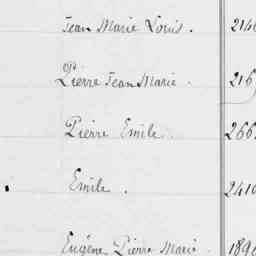 Jean Marie Louis. 214
Pierre Jean Marie. 216
Pierre Emile 266
Emile. 2410
Eugène Pierre Marie. 189